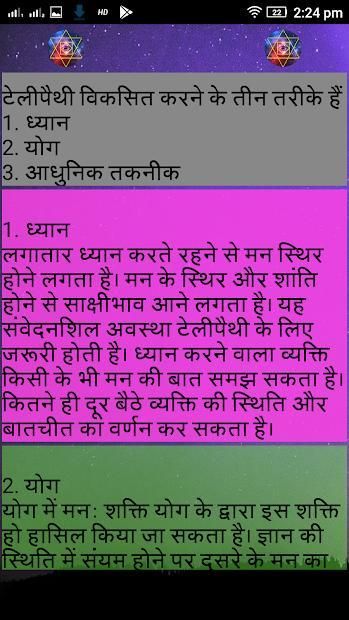 HD 22 2:24 pm
टेलीपैथी विकसित करने के तीन तरीके हैं
1. ध्यान
2. योग
3. आधुनिक तकनीक
1. ध्यान
लगातार ध्यान करते रहने से मन स्थिर
होने लगता है। मन के स्थिर और शांति
होने से साक्षीभाव आने लगता है। यह
संवेदनशिल अवस्था टेलीपैथी के लिए
जरूरी होती है। ध्यान करने वाला व्यक्ति
किसी के भी मन की बात समझ सकता है।
कितने ही दूर बैठे व्यक्ति की स्थिति और
बातचीत का वर्णन कर सकता है।
2. योग
योग में मन: शक्ति योग के द्वारा इस शक्ति
हो हासिल किया जा सकता है। ज्ञान की
स्थिति में संयम होने पर दूसरे के मन का